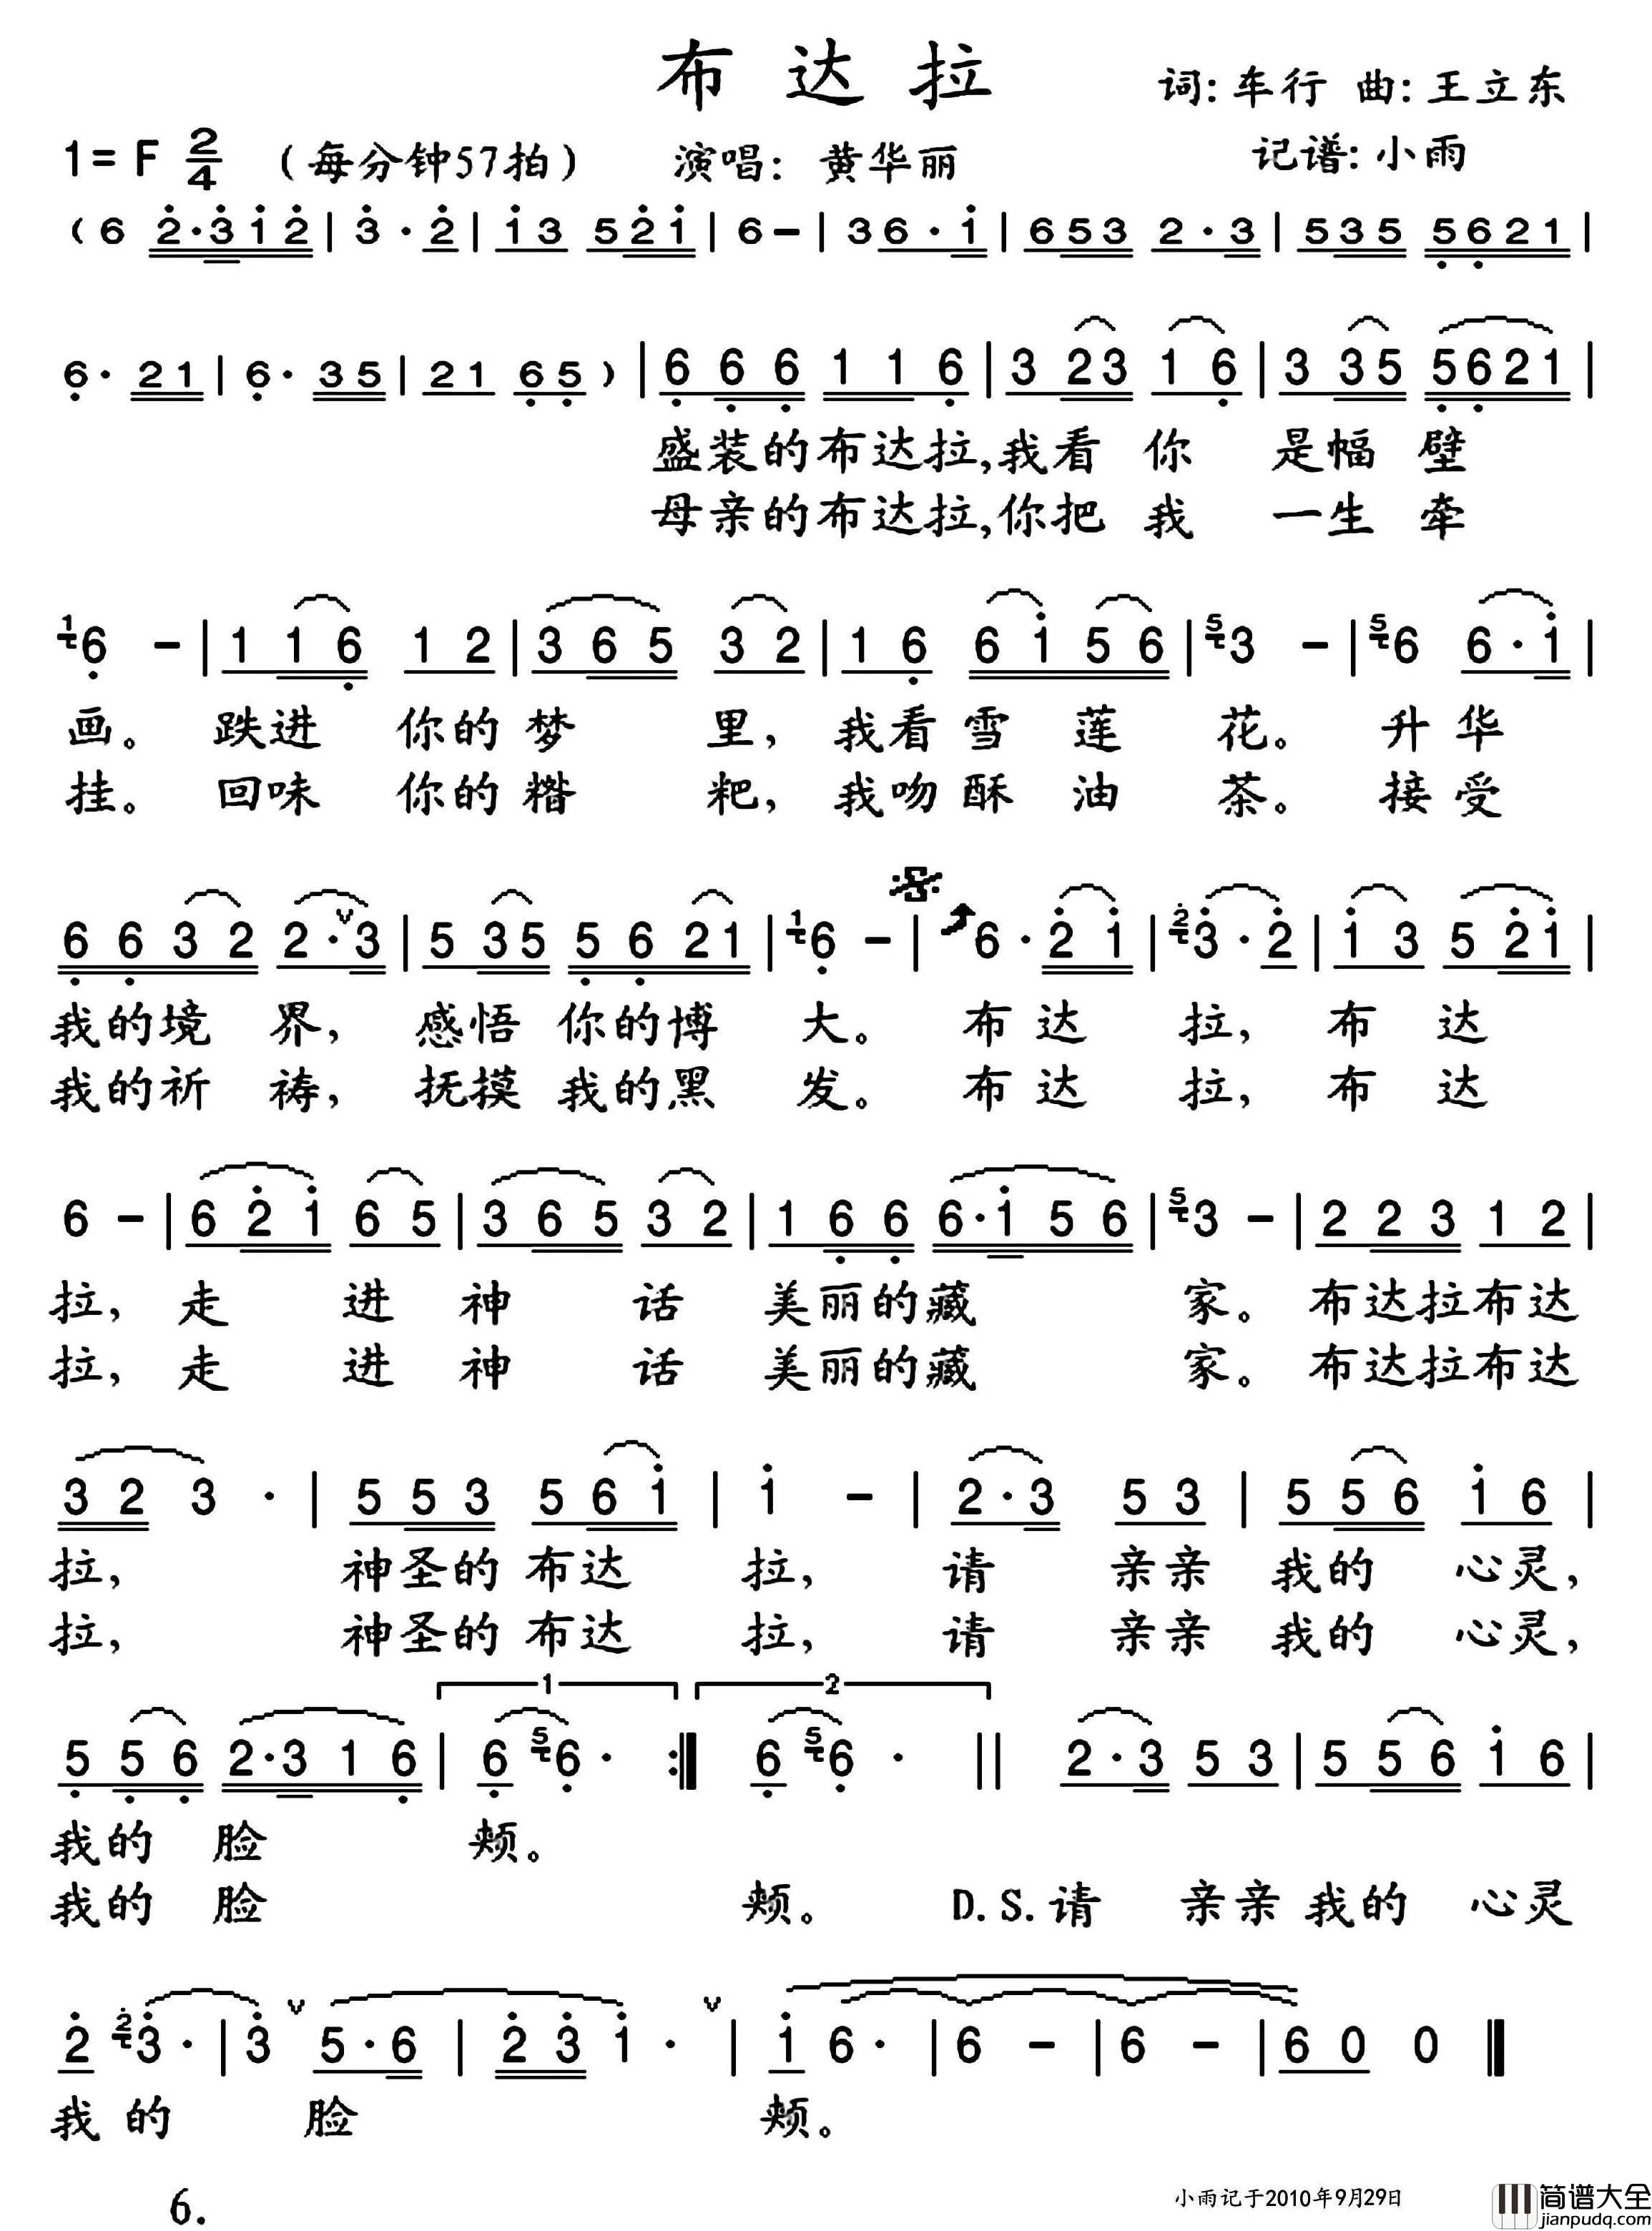 布达拉
词:车行 曲:王立东
1=F 2/4 (每分钟57拍) 演唱: 黄华丽 记谱:小雨
(6 2·312|3·2|13 521|6-|36·1|653 2·3|535 5621|
6·21|6·35|21 65)|666 116|3 23 1 6|3 35 5621|
盛装的布达拉,我看 你 是幅 壁
母亲的布达拉,你把 我 一生 牵
16 -|1 16 1 2|3 65 3 2|1 6 6156|53 -|56 6·1|
画。 跌进 你的梦 里, 我看雪 莲 花。 升华
挂。 回味 你的糌 粑, 我吻酥 油 茶。 接受
6632 2·3|5 35 5621|16 -|6·21|23·2|1 3 5 21|
我的境 界, 感悟 你的博 大。 布 达 拉, 布 达
我的祈 祷, 抚摸 我的黑 发。 布 达 拉, 布 达
6 -|6 21 6 5|3 65 3 2|1 66 6·156|53 -|2 23 1 2|
拉, 走 进 神 话 美丽的藏 家。 布达拉布达
拉, 走 进 神 话 美丽的藏 家。 布达拉布达
32 3 ·|5 53 5 61|1 -|2·3 5 3|5 56 1 6|
拉, 神圣的 布达 拉, 请 亲亲 我的 心灵,
拉, 神圣的 布达 拉, 请 亲亲 我的 心灵,
1 2
5 56 2·316|6 56· :‖ 6 56· ‖ 2·3 5 3|5 56 1 6|
我的 脸 颊。
我的 脸 颊。 D.S.请 亲亲 我的 心灵
2 23·|3 5·6|23 1·|1 6·|6 -|6 -|6 0 0‖
我 的 脸 颊。
6.
小雨记于2010年9月29日
简谱大全
jianpudq.com